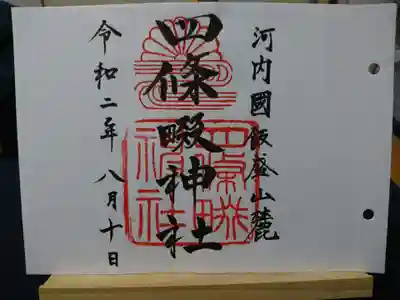 河内國飯盛山麓
四條畷神社
四條畷神社
令和二年八月十日